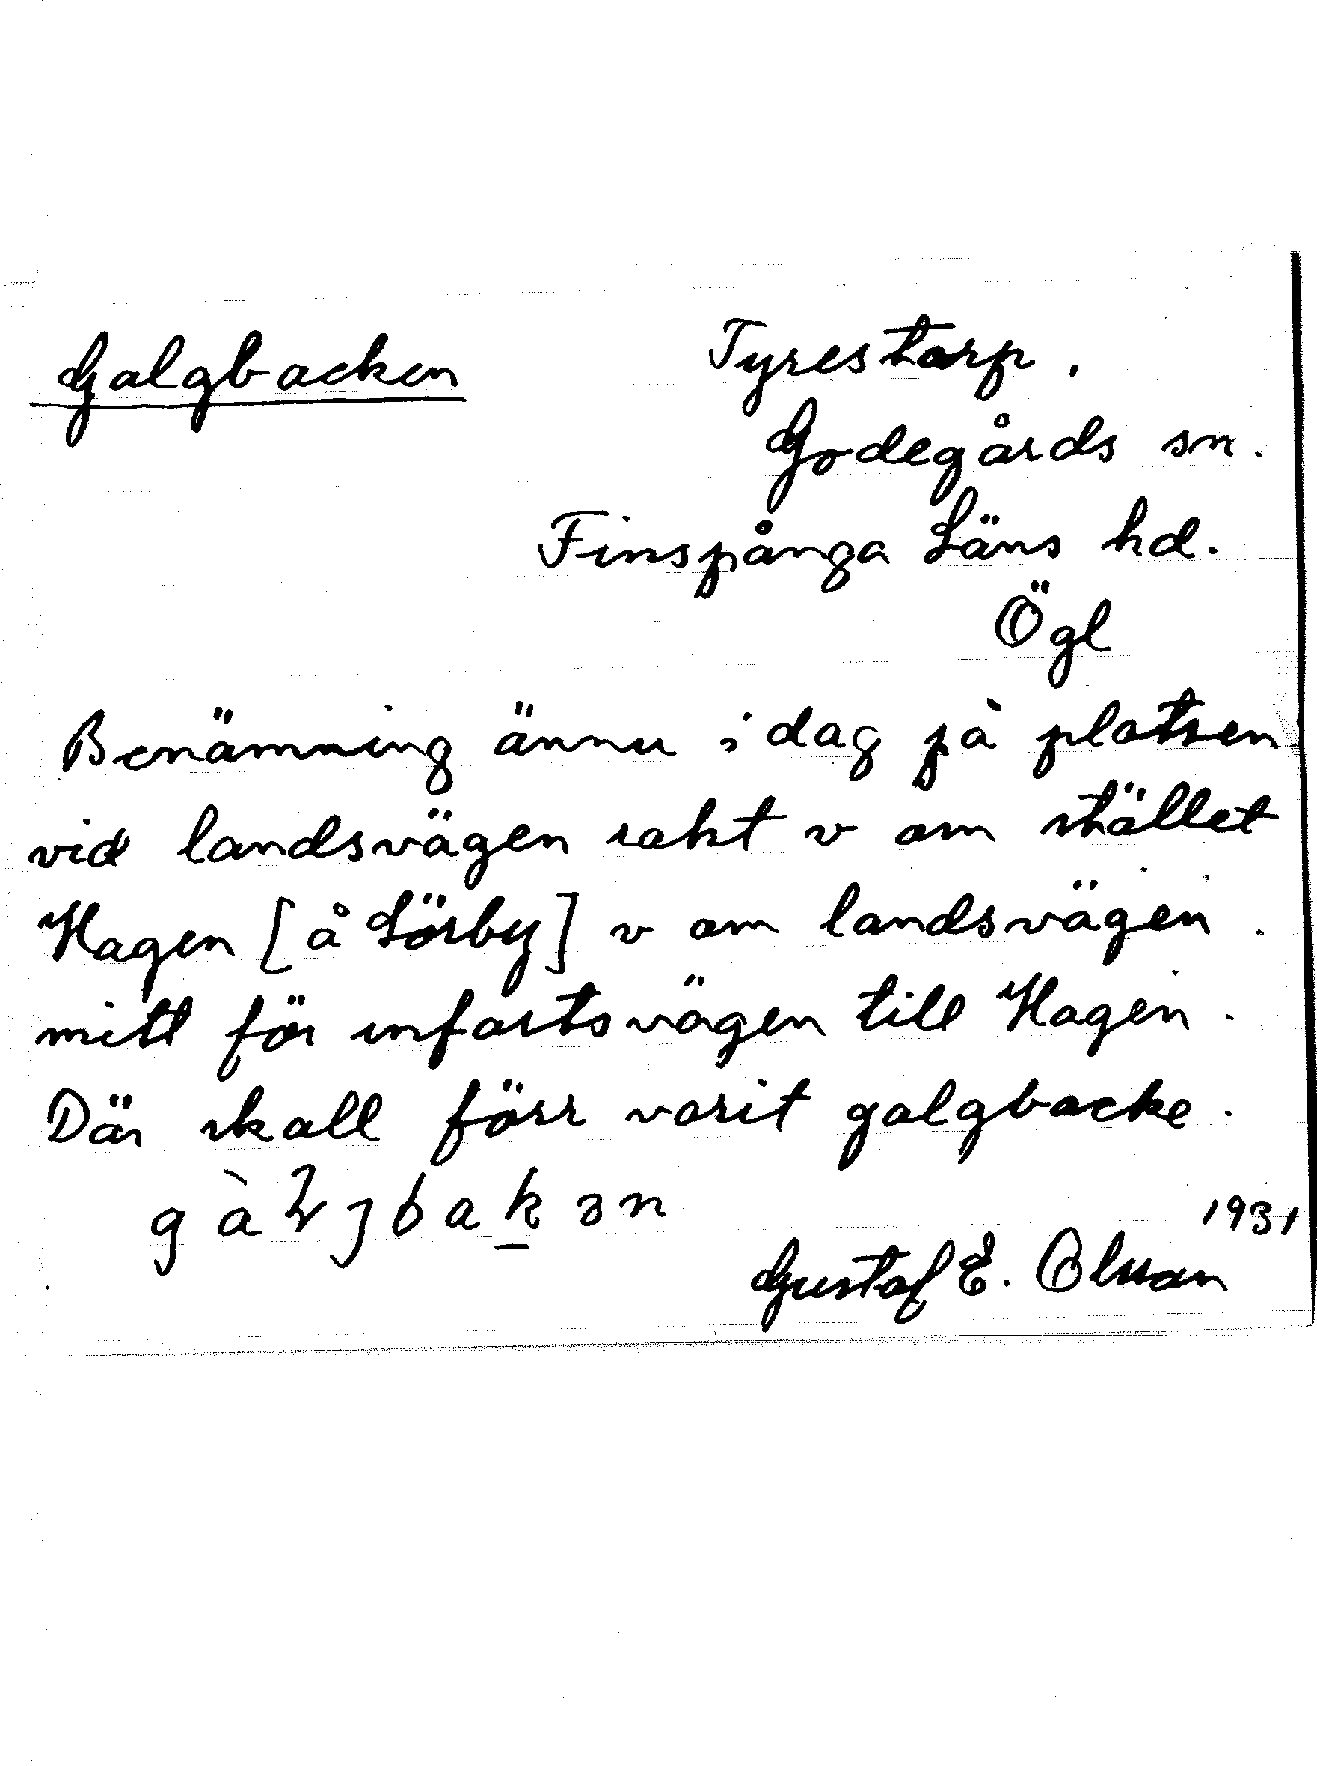 Galgbacken
Tyrestorp.
Godegårds sn.
Finspånga Läns hd.
Ögl
Benämning ännu i dag på platsen
vid landsvägen rakt v om stället
Hagen [å Sörby] v om landsvägen.
mitt för infartsvägen till Hagen.
Där skall förr varit galgbacke.
1931
Gustaf E. Olsson